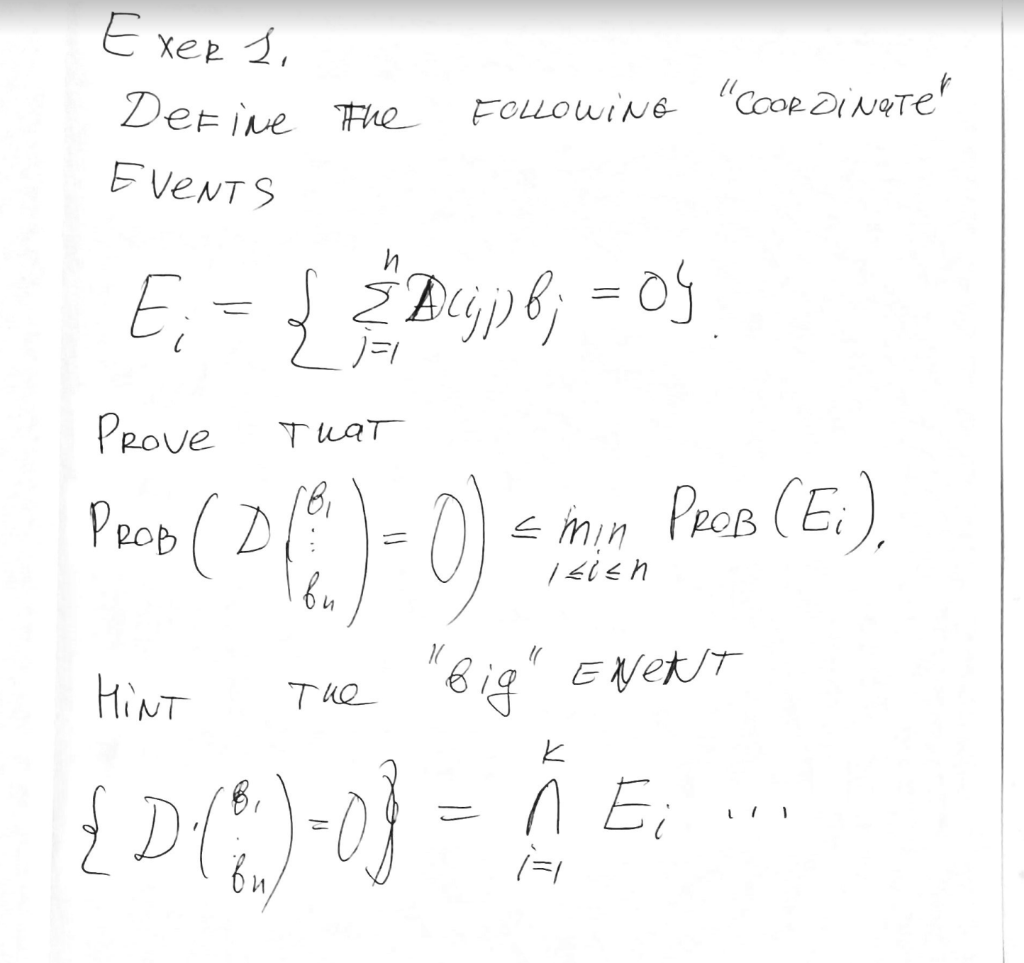 Exer 1.
Define the following "coordinate"
events
E_i = { \sum_{j=1}^{n} D(i,j) b_j = 0 }.
Prove that
Prob ( D ( b_1 ⋮ b_n ) = 0 ) ≤ min_{1≤i≤n} Prob (E_i).
Hint The "big" event
{ D·( b_1 ⋮ b_n ) = 0 } = \bigcap_{i=1}^{K} E_i ...